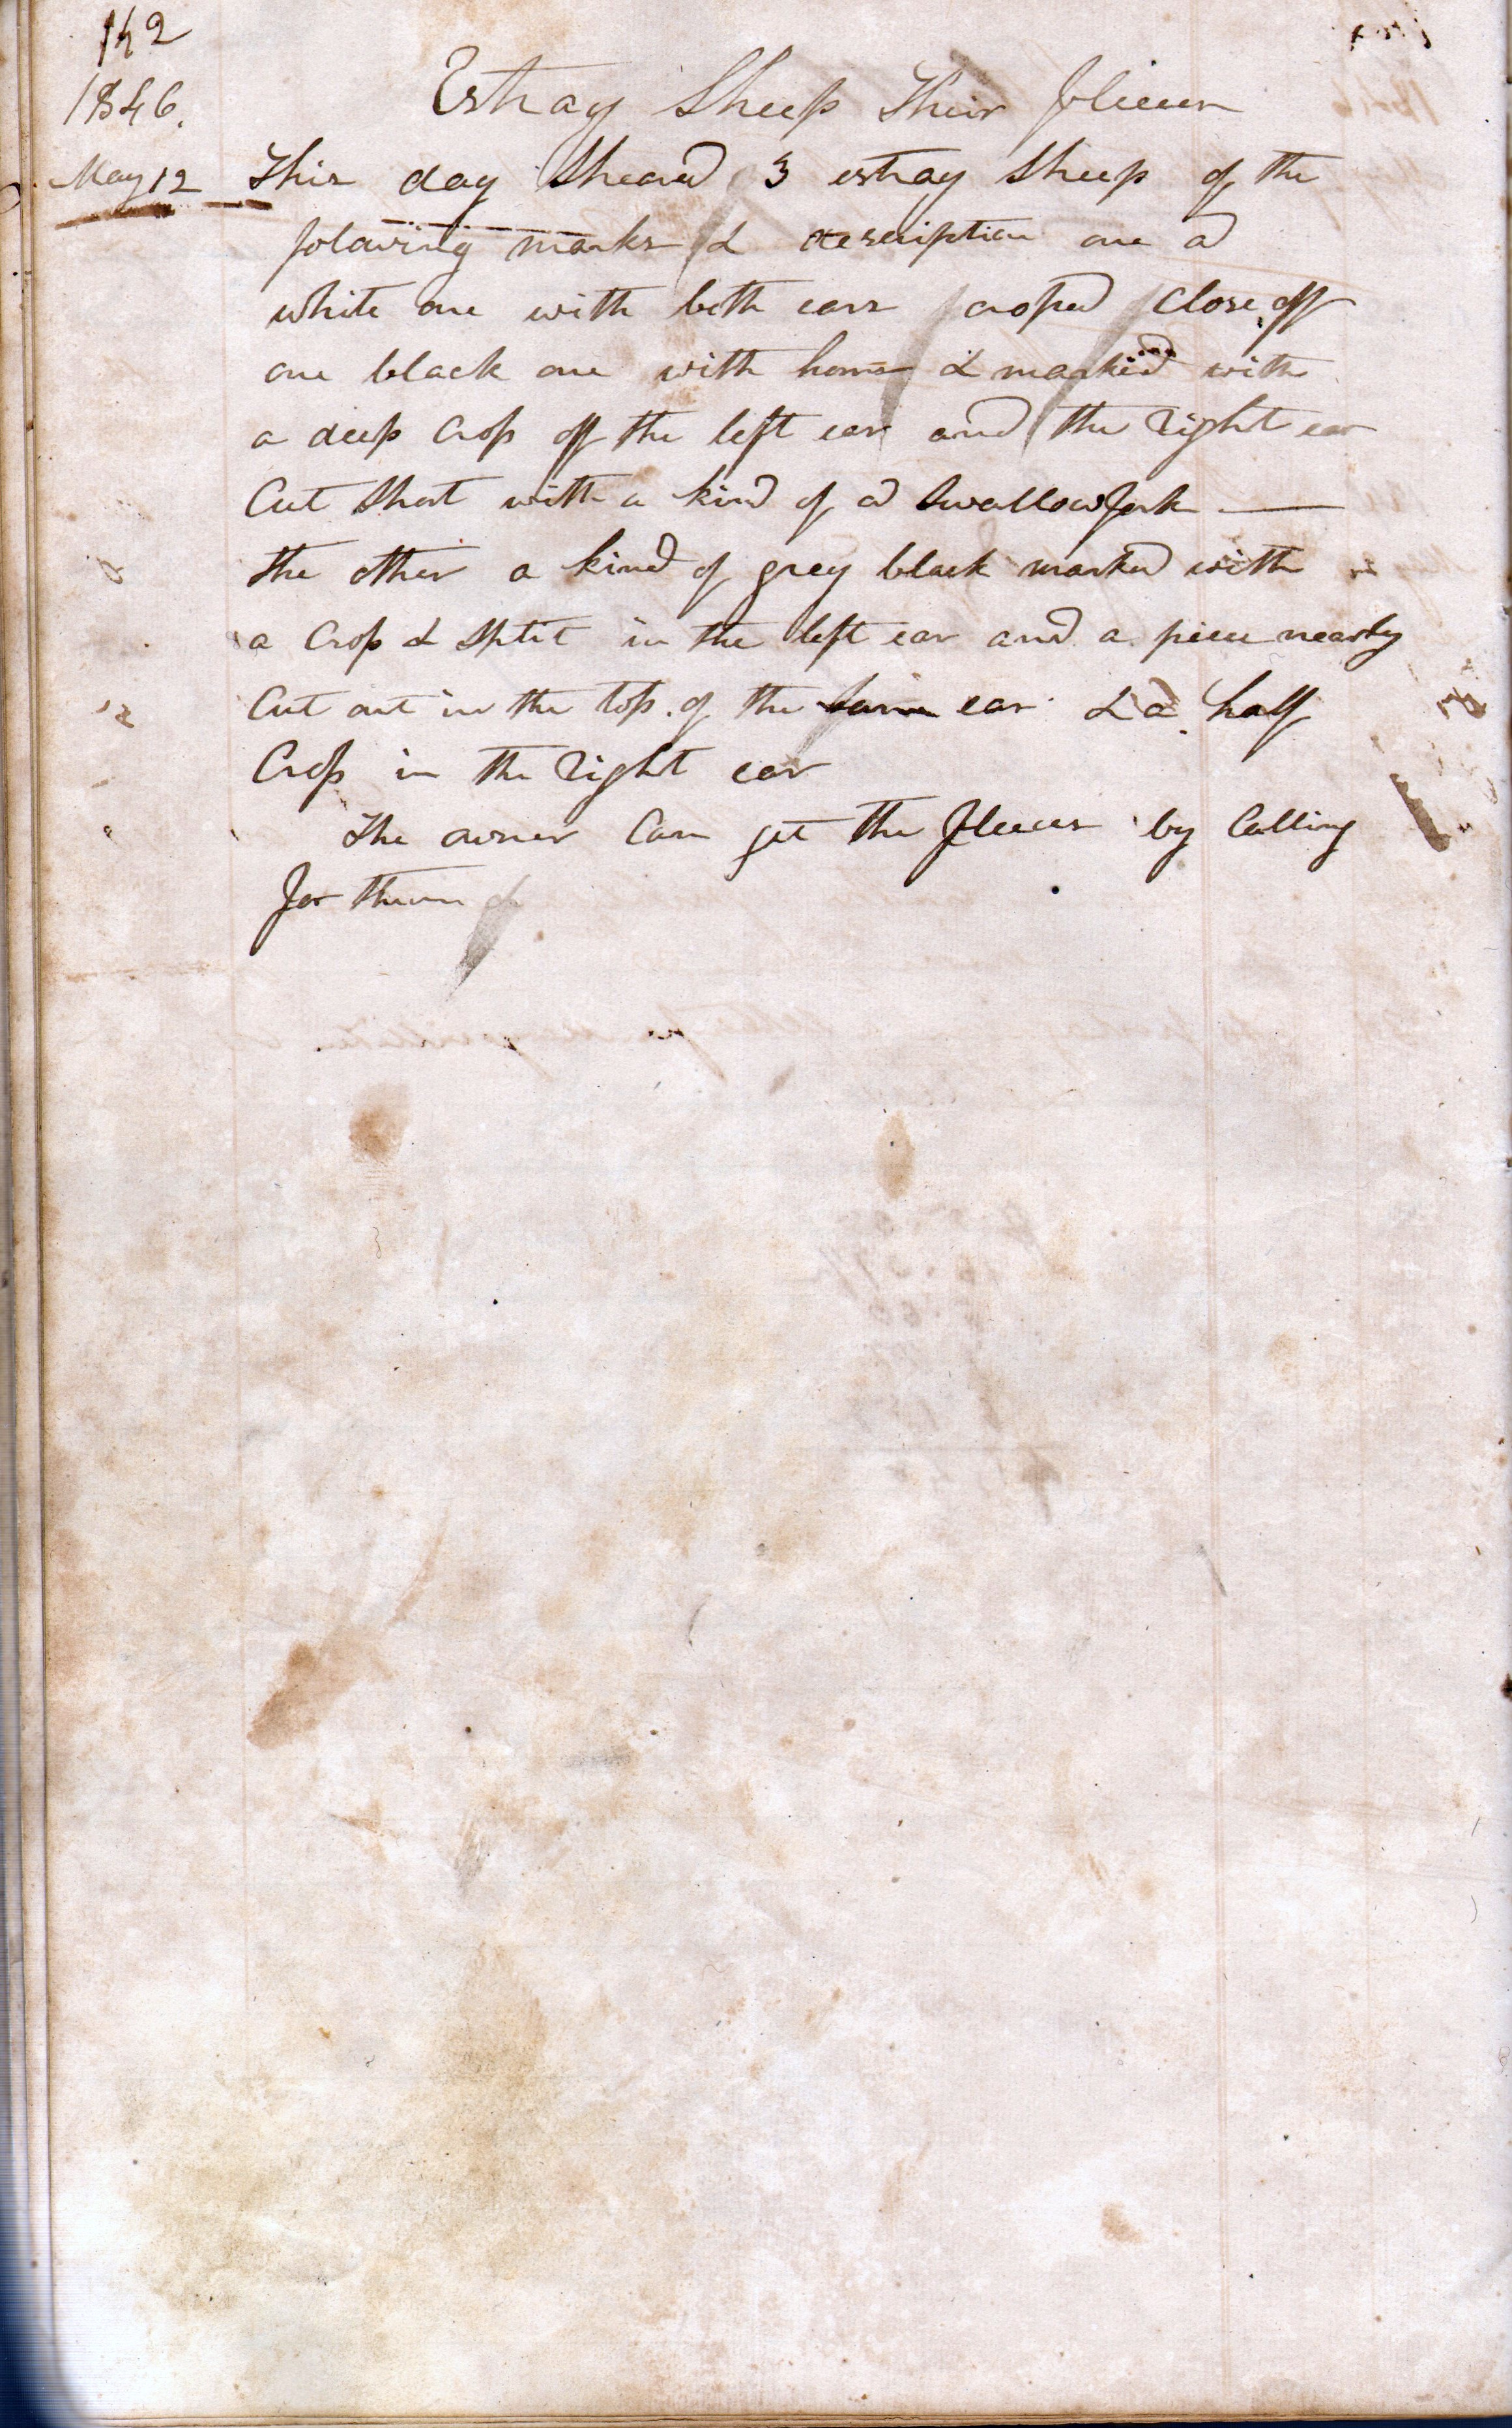 142
1846.
Estray Sheep Their fleeces
May 12 This day Sheared 3 estray Sheep of the
folowing marks & description one a
white one with both ears croped close off
one black one with horns & marked with
a deep Crop off the left ear and the right ear
Cut Short with a kind of a Swallowfork
the other a kind of grey black marked with
a Crop & Split in the left ear and a piece nearly
Cut out in the top of the same ear & a half
Crop in the right ear
The owner Can get the fleeces by Calling
for them